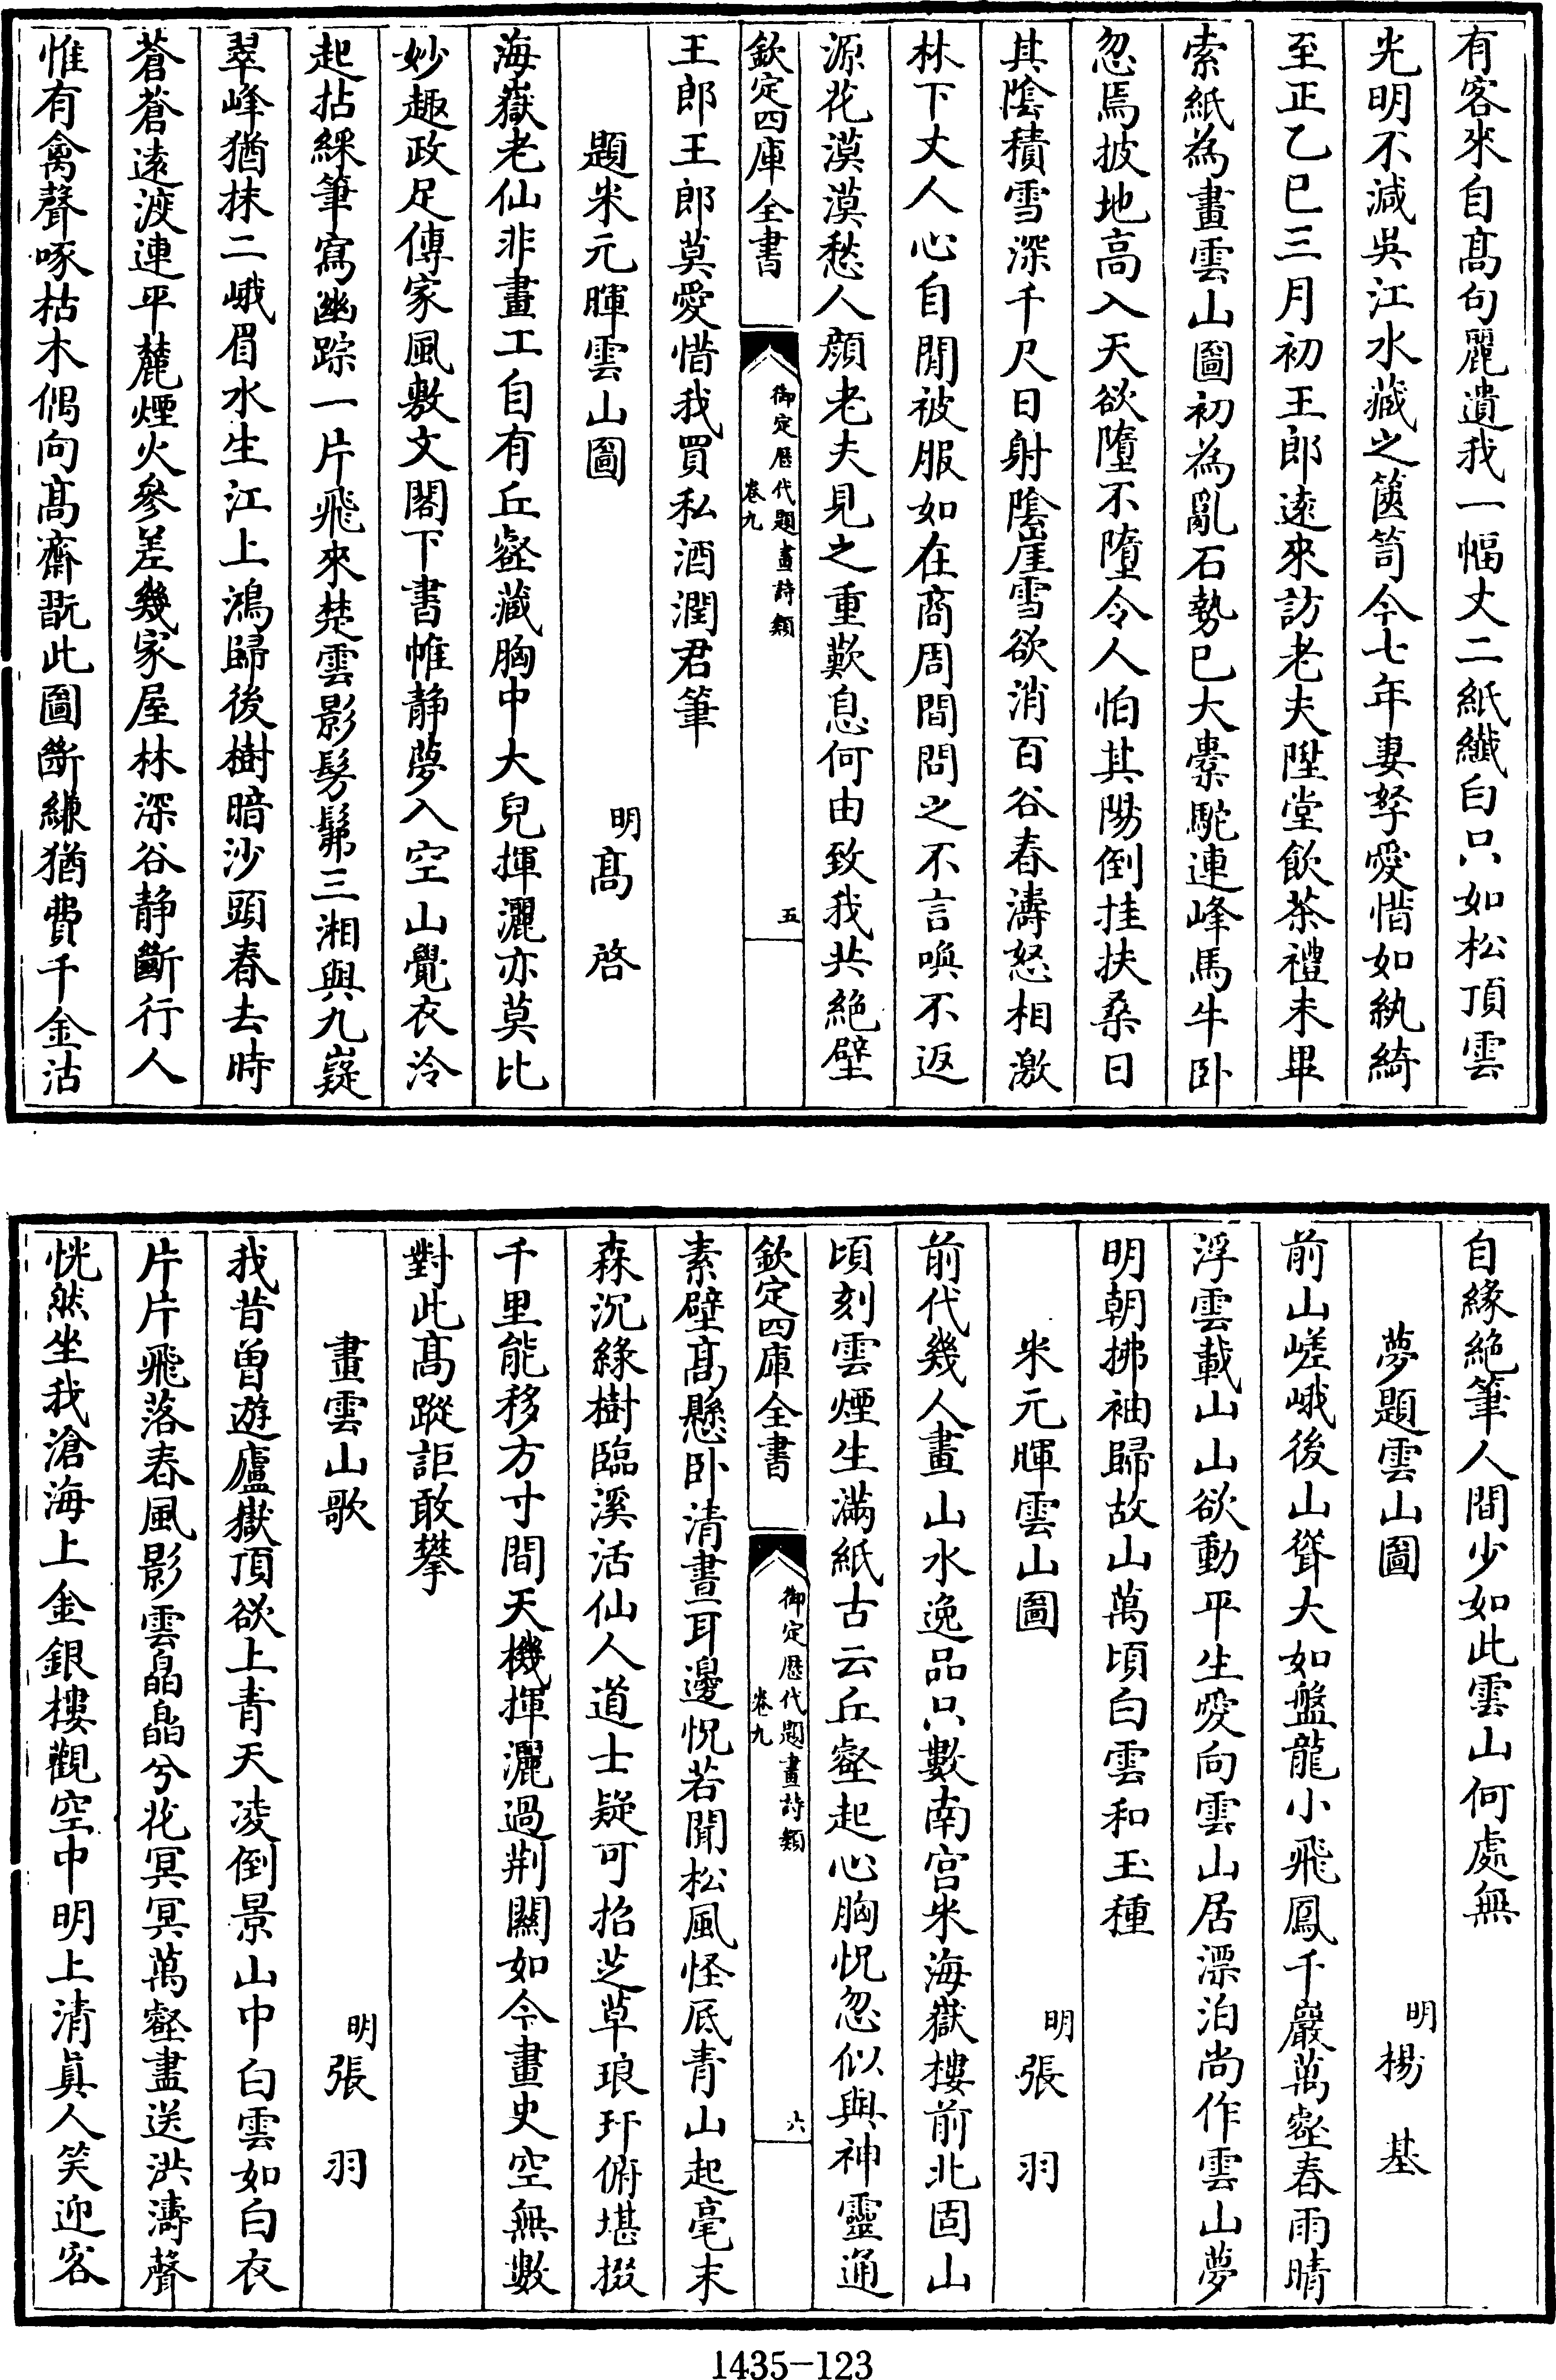 有客來自髙句麗遺我一幅丈二紙纖白只如松頂雲
光明不減吳江水藏之篋笥今七年妻孥愛惜如紈綺
至正乙巳三月初王郎逺來訪老夫陞堂飲茶禮未畢
索紙為畫雲山圖初為亂石勢已大橐駝連峰馬牛卧
忽焉披地高入天欲墮不墮令人怕其陽倒挂扶桑日
其陰積雪深千尺日射陰崖雪欲消百谷春濤怒相激
林下丈人心自閒被服如在商周間問之不言喚不返
源花漠漠愁人顔老夫見之重歎息何由致我共絶壁
欽定四庫全書
御定歴代題畫詩類
卷九
五
王郎王郎莫愛惜我買私酒潤君筆
題米元暉雲山圖
明高啓
海嶽老仙非畫工自有丘壑藏胸中大兒揮灑亦莫比
妙趣政足傳家風敷文閣下書帷静夢入空山覺衣冷
起拈綵筆寫幽踪一片飛來楚雲影髣髴三湘與九嶷
翠峰猶抹二峨眉水生江上鴻歸後樹暗沙頭春去時
蒼蒼逺渡連平麓煙火參差幾家屋林深谷静斷行人
惟有禽聲啄枯木偶向髙齋翫此圖斷縑猶費千金沽
自緣絶筆人間少如此雲山何處無
夢題雲山圖
明楊基
前山嵯峨後山聳大如盤龍小飛鳳千巖萬壑春雨晴
浮雲載山山欲動平生愛向雲山居漂泊尚作雲山夢
明朝拂袖歸故山萬頃白雲和玉種
米元暉雲山圖
明張羽
前代幾人畫山水逸品只數南宫米海嶽樓前北固山
頃刻雲煙生滿紙古云丘壑起心胸怳忽似與神靈通
欽定四庫全書
御定歴代題畫詩類
卷九
六
素壁髙懸卧清晝耳邊怳若聞松風怪底青山起毫末
森沉緑樹臨溪活仙人道士疑可招芝草琅玕俯堪掇
千里能移方寸間天機揮灑過荆關如今畫史空無數
對此髙蹤詎敢攀
畫雲山歌
明張羽
我昔曽遊廬嶽頂欲上青天凌倒景山中白雲如白衣
片片飛落春風影雲皛皛兮花冥冥萬壑盡送洪濤聲
恍然坐我滄海上金銀樓觀空中明上清真人笑迎客
1435-123